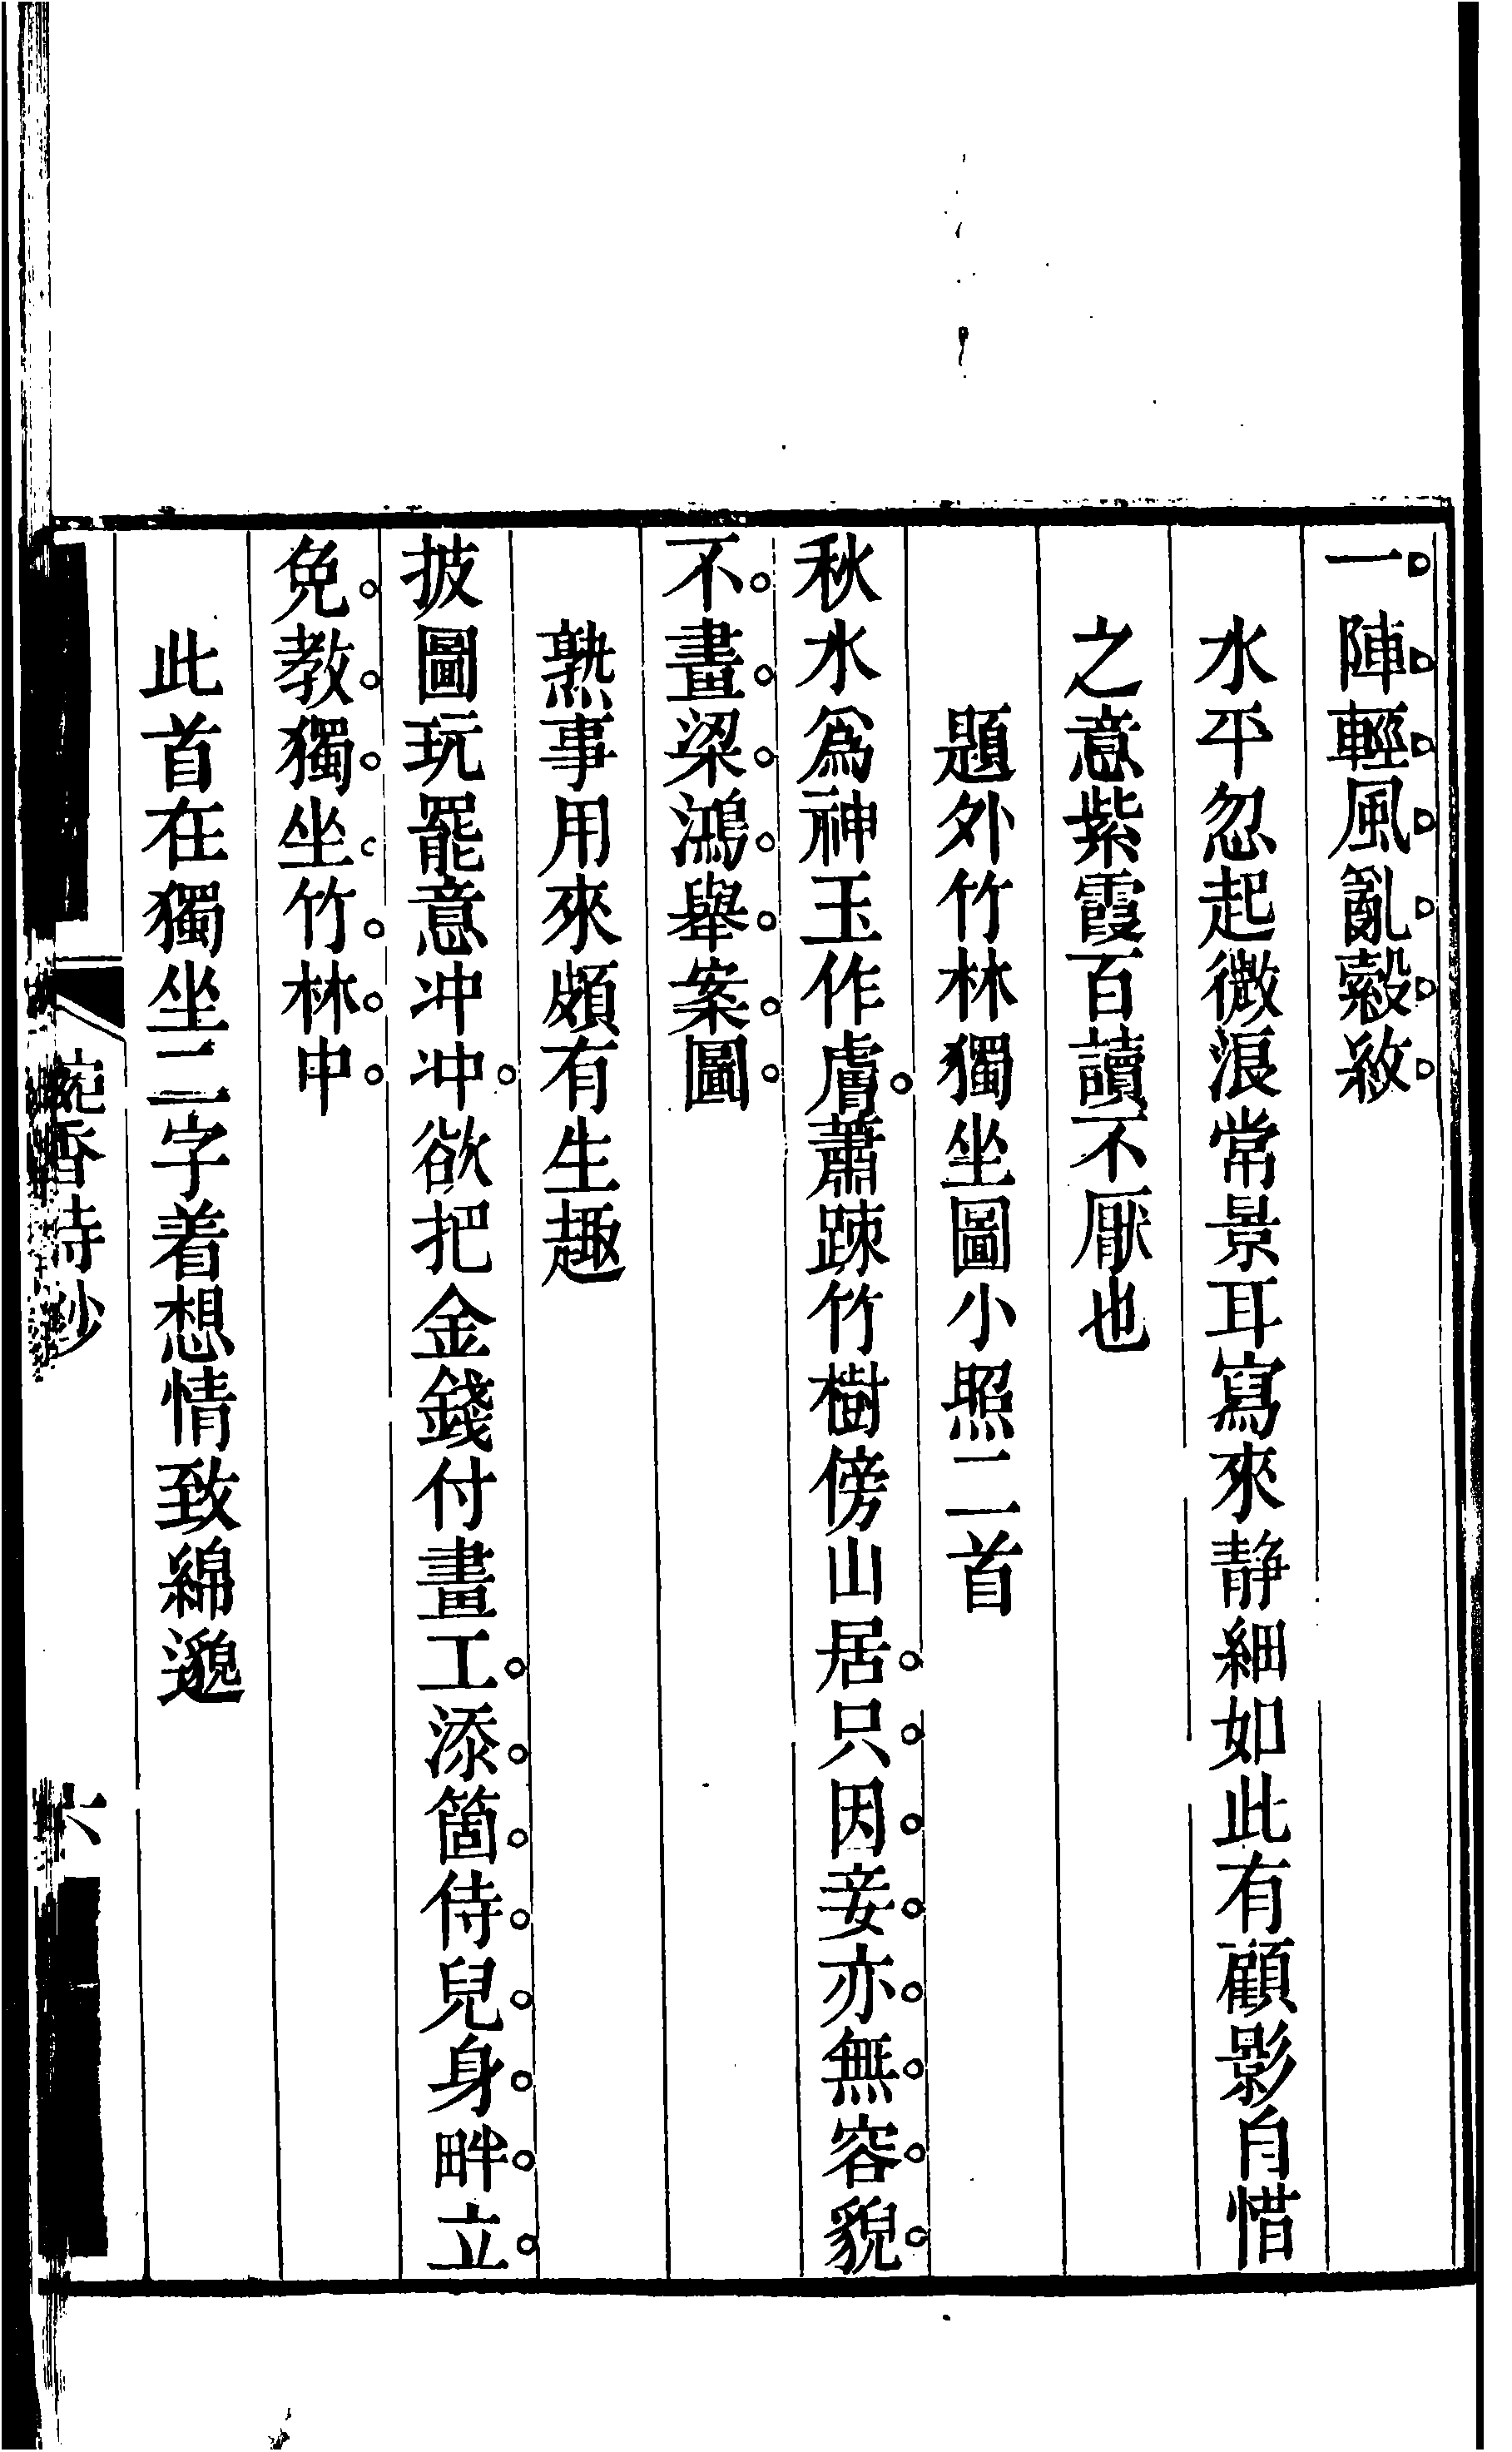 一陣輕風亂縠紋
水平忽起微浪常景耳寫來静細如此有顧影自惜
之意紫霞百讀不厭也
題外竹林獨坐圖小照二首
秋水爲神玉作膚蕭踈竹樹傍山居只因妾亦無容貌
不畫梁鴻舉案圖
熟事用來頗有生趣
披圖玩罷意冲冲欲把金錢付畫工添箇侍兒身畔立
免教獨坐竹林中
此首在獨坐二字着想情致綿邈
香詩鈔
六